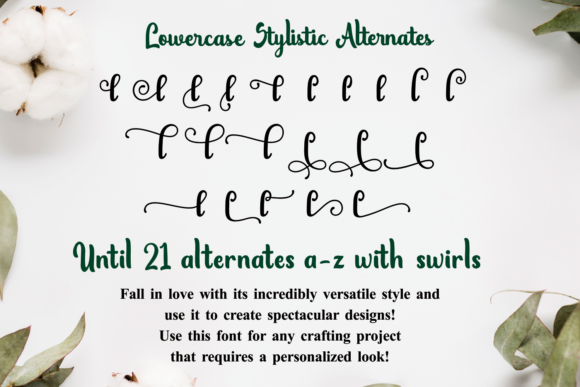 Lowercase Stylistic Alternates
Until 21 alternates a-z with swirls
Fall in love with its incredibly versatile style and
use it to create spectacular designs!
Use this font for any crafting project
that requires a personalized look!